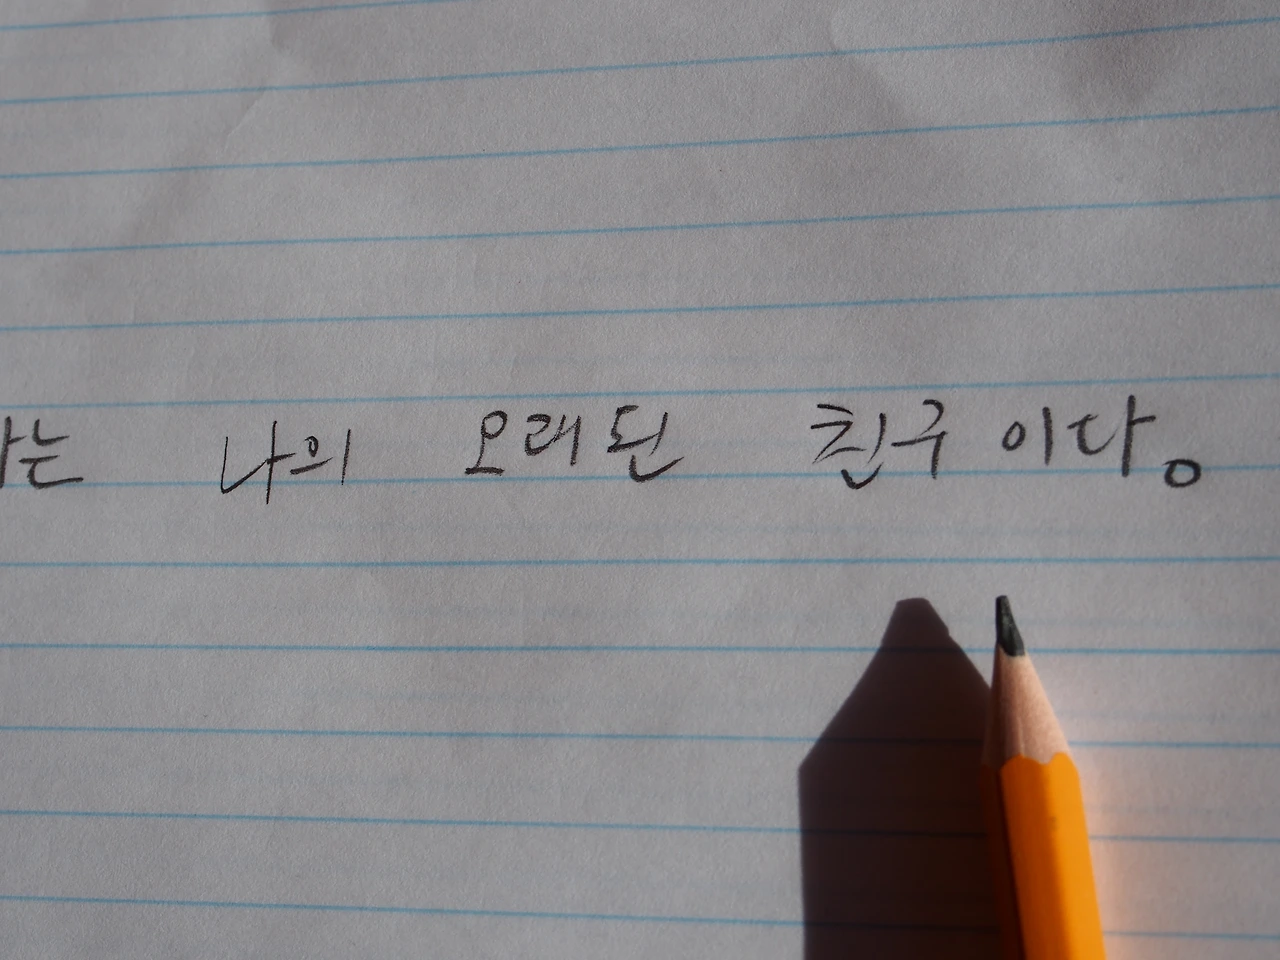 는 나의 오래된 친구이다.